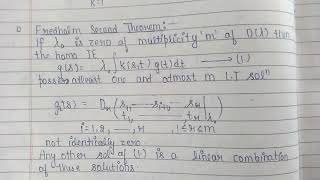 K=1
Fredholm Second Theorem:-
If λ₀ is zero of multiplicity 'm' of D(λ) then
the homo IE
g(s) = λ₀∫k(s,t) g(t)dt → (1.)
posses atleast one and atmost m L.I solⁿ
not identically zero.
Any other sol of (1.) is a linear combination
of those solutions.